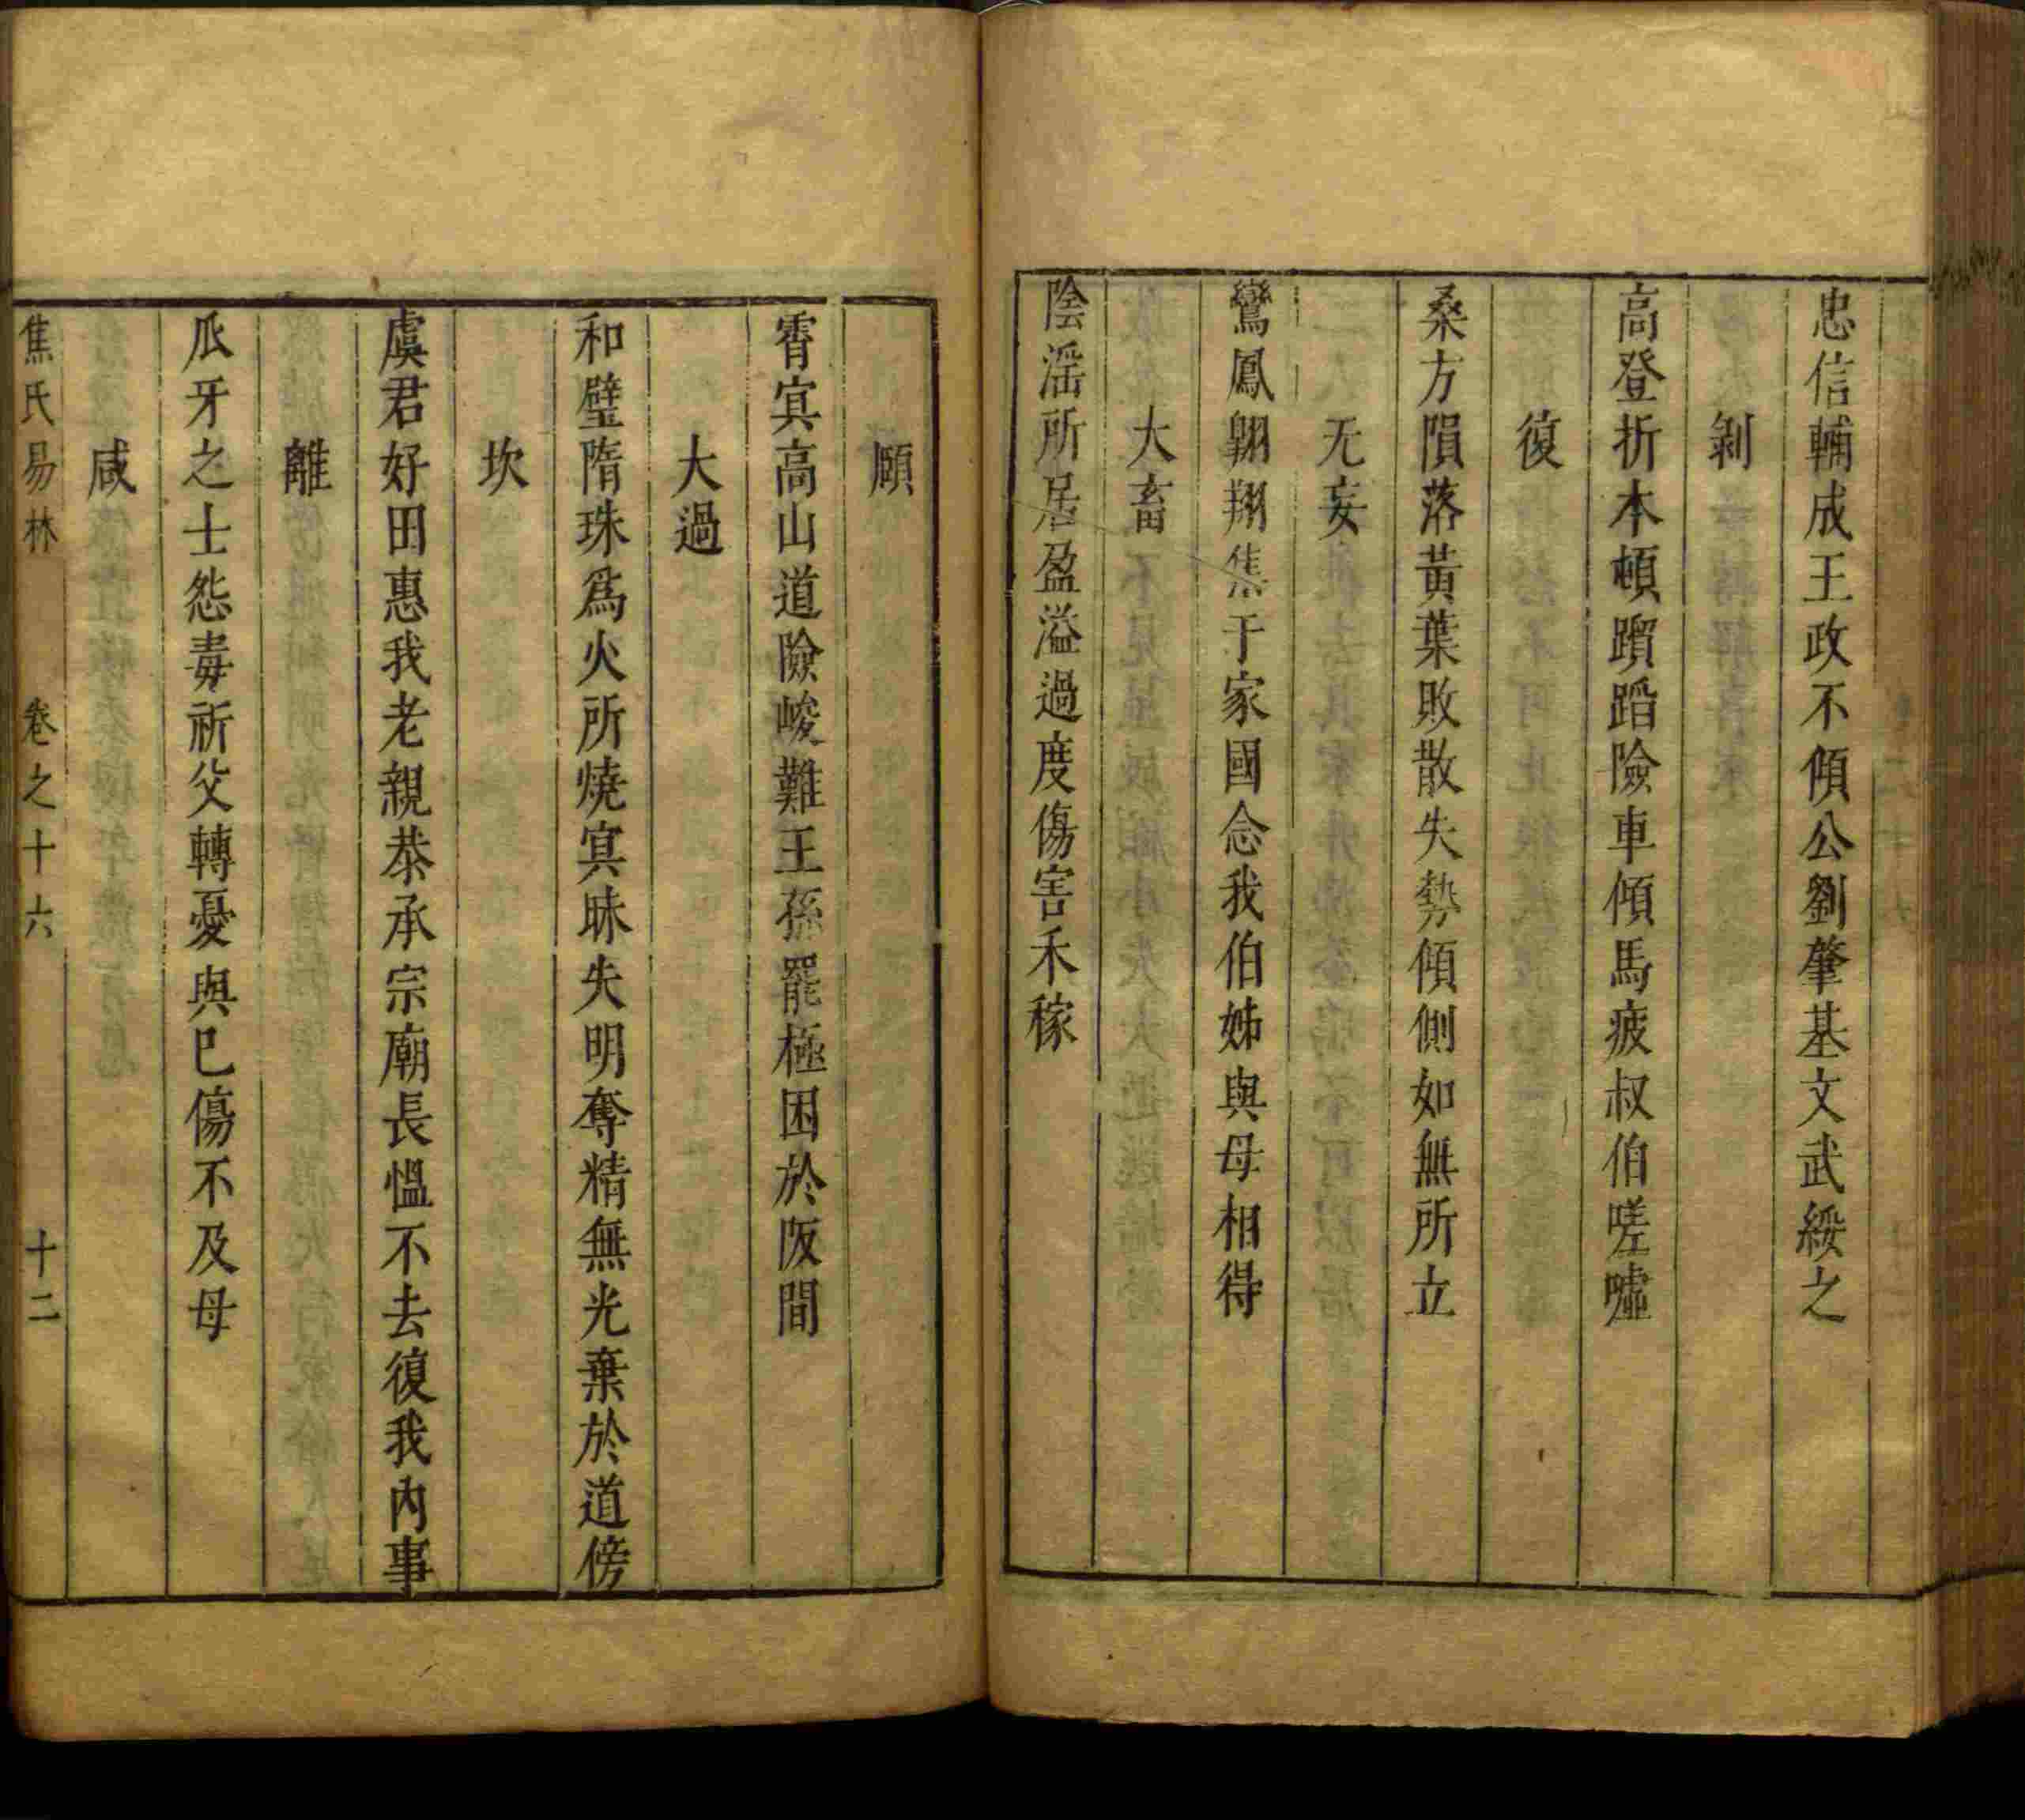 忠信輔成王政不傾公劉肇基文武綏之
剝
高登折本頓躓蹈險車傾馬疲叔伯嗟噓
復
桑方隕落黃葉敗散失勢傾側如無所立
无妄
鸞鳳翱翔集于家國念我伯姊與母相得
大畜
陰淫所居盈溢過度傷害禾稼
頤
霄冥高山道險峻難王孫罷極困於阪間
大過
和璧隋珠爲火所燒冥昧失明奪精無光棄於道傍
坎
虞君好田惠我老親恭承宗廟長慍不去復我內事
離
爪牙之士怨毒祈父轉憂與巳傷不及母
咸
焦氏易林 卷之十六 十二